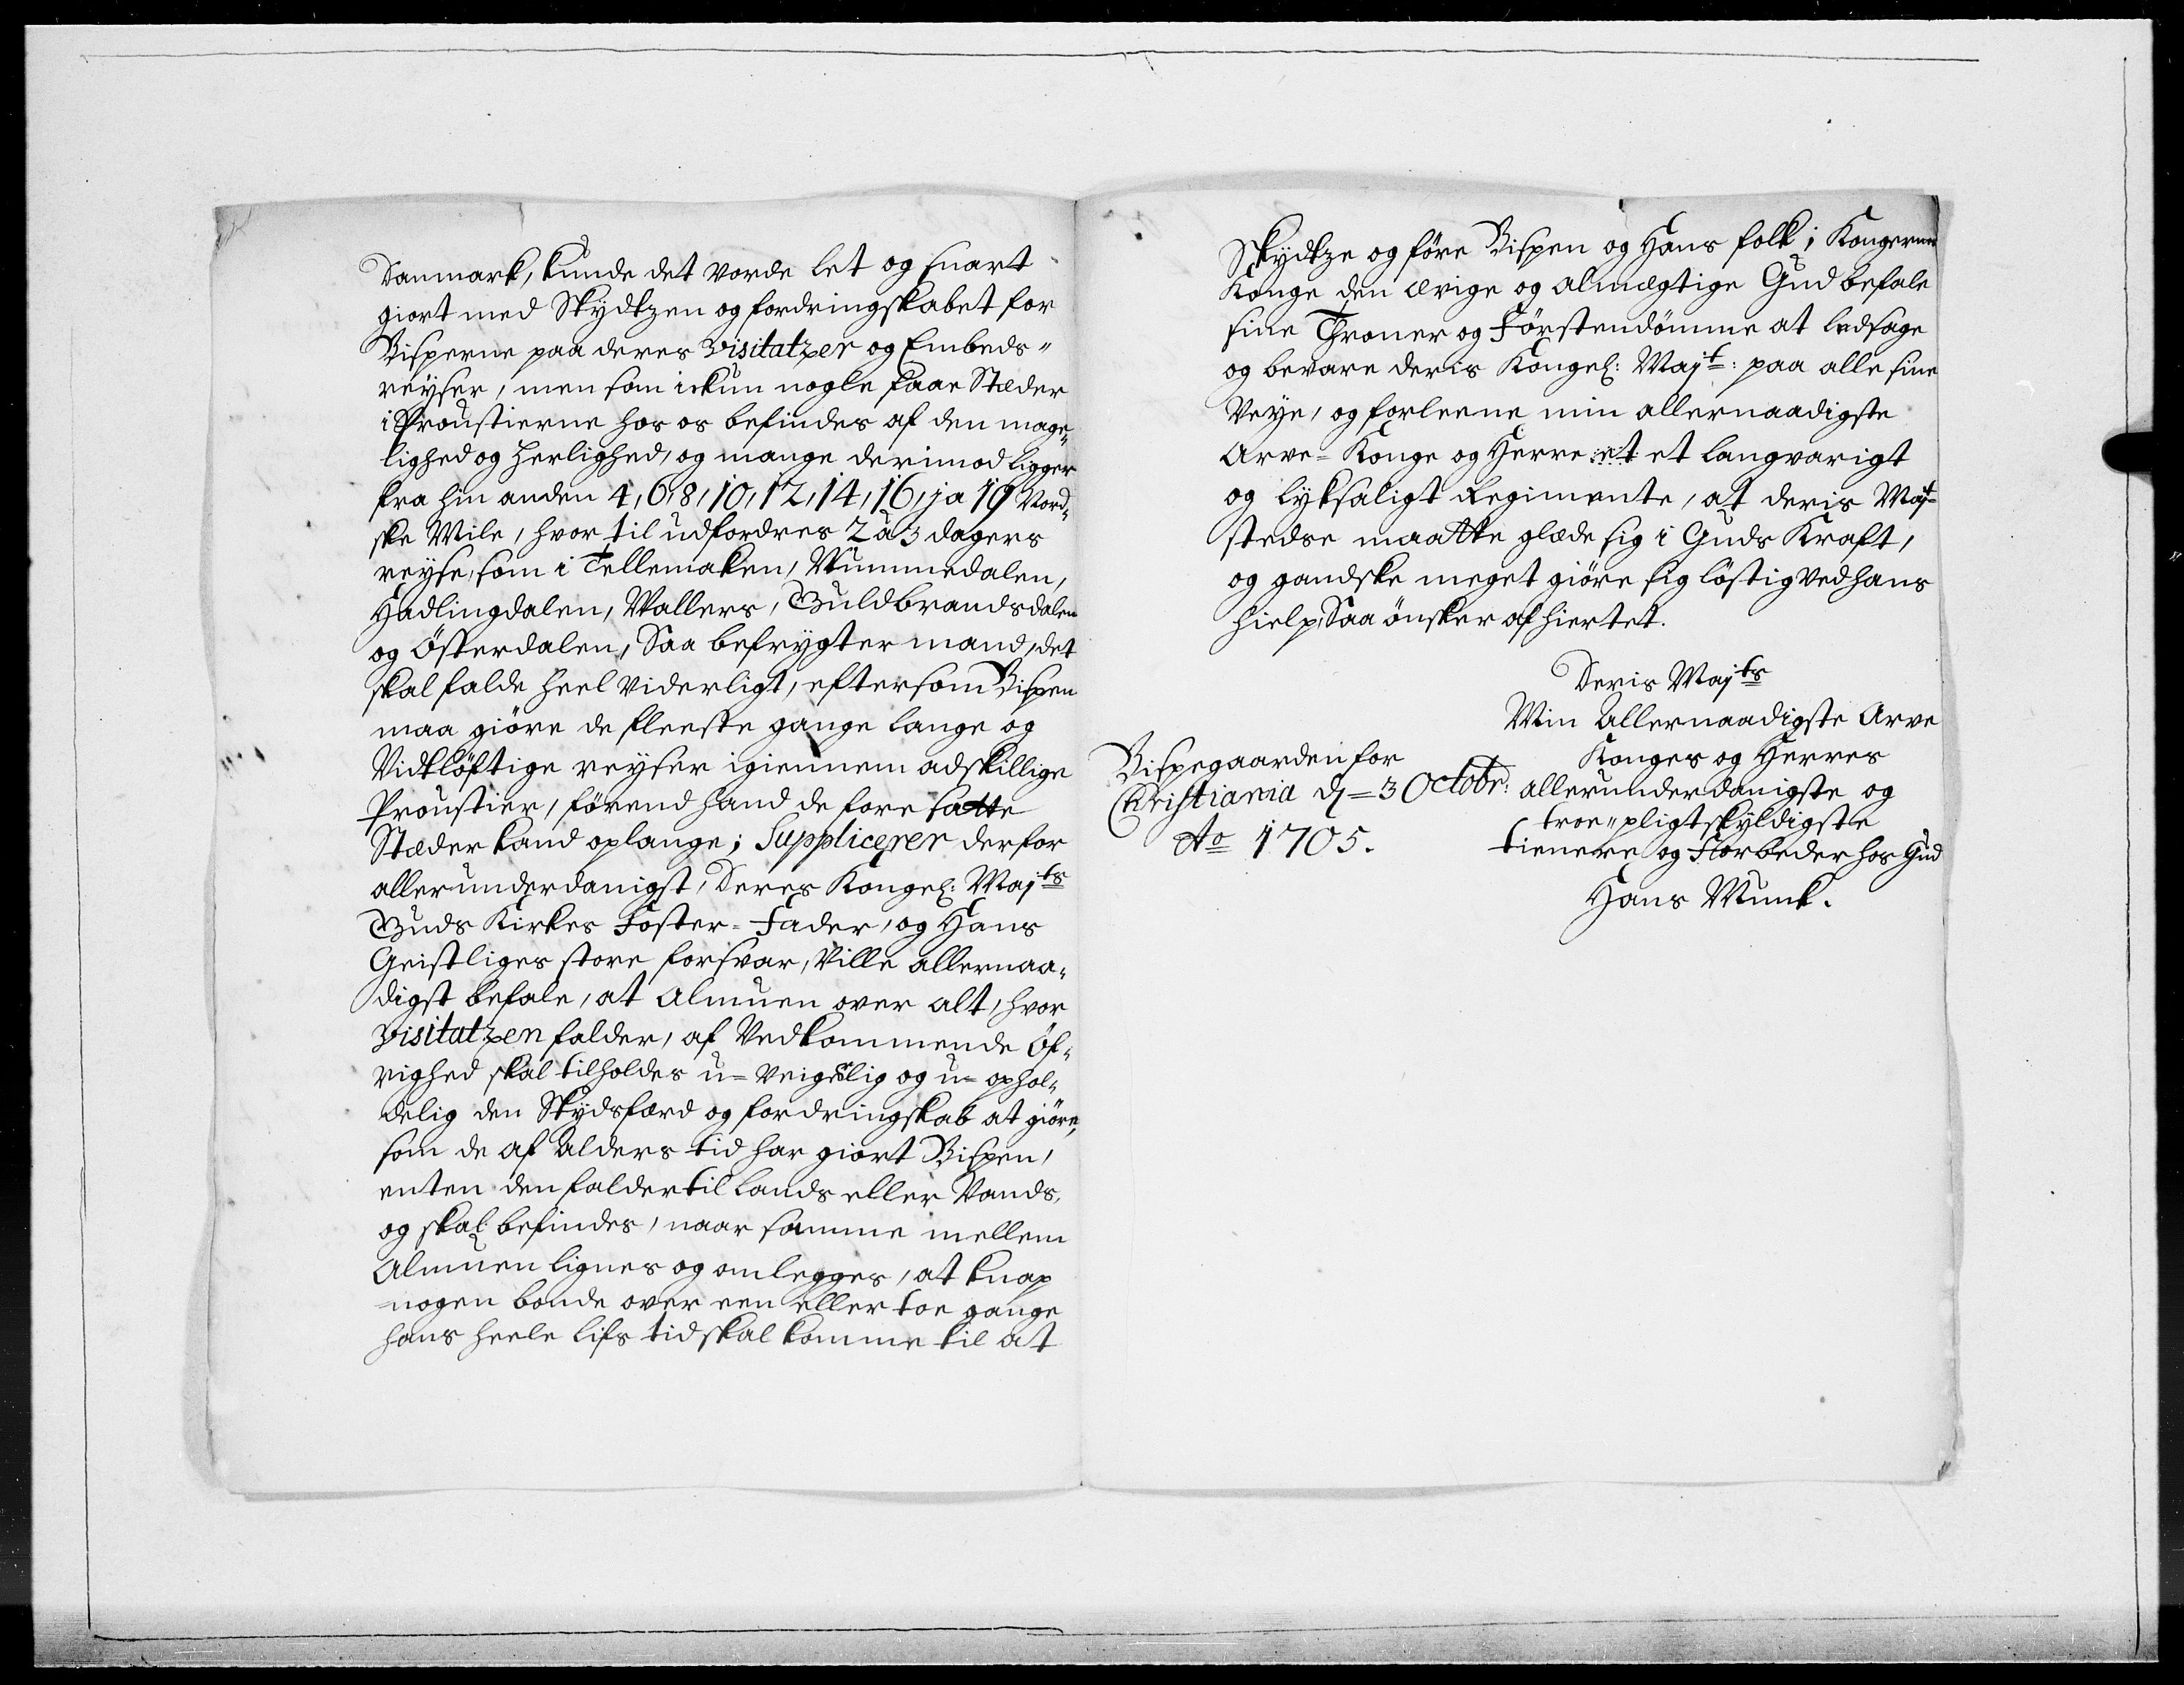 Danmark, kunde det vorde let og snart
giort med Skydtzen og fordringskabet for
Bisperne paa deres Visitatzer og Embeds-
reyser, men som ickun nogle faae Stæder
i Proustierne hos os befindes af den mage-
lighed og herlighed, og mange derimod ligger
fra hin anden 4, 6, 8, 10, 12, 14, 16, ja 19 Nord-
ske Mile, hvor til udfordres 2 à 3 dagers
reyse, som i Tellemaken, Nummedalen,
Hadlingdalen, Wallers, Guldbrandsdalen
og Österdalen, Saa befrygter mand, det
skal falde heel viderligt, eftersom Bispen
maa giöre de fleeste gange lange og
Vidtlöftige reyser igiennem adskillige
Proustier, förend hand de fore satte
Stæder kand oplange; Supplicerer derfor
allerunderdanigst, Deres Kongel: Majts
Guds Kirkes Foster-Fader, og Hans
Geistliges store forsvar, Ville allernaa-
digst befale, at Almuen over alt, hvor
Visitatzen falder, af Vedkommende Öf-
righed skal tilholdes u-veigerlig og u-ophol-
delig den Skydsfærd og fordringskab at giöre,
som de af Alders tid har giort Bispen,
enten den falder til Lands eller Vands,
og skal befindes, naar samme mellem
Almuen lignes og omlegges, at knap
nogen bonde over een eller toe gange
hans heele lifs tid skal komme til at
Skydtze og före Bispen og Hans folk; Kongernes
Konge den ævige og almægtige Gud befale
sine Throner og Förstendömme at ledsage
og bevare deris Kongel: Majt: paa alle sine
Veye, og forleene min allernaadigste
Arve-Konge og Herre et et langvarigt
og lyksaligt Regimente, at deris Majt
stedse maatte glæde sig i Guds Kraft,
og gandske meget giöre sig löstig ved hans
hielp; Saa önsker af hiertet.
Deris Majts
Min Allernaadigste Arve
Konges og Herres
Bispegaarden for
Christiania d 3 Octobr:
Ao 1705.
allerunderdanigste og
troe-pligtskyldigste
tienere og Forbeder hos Gud
Hans Munk.